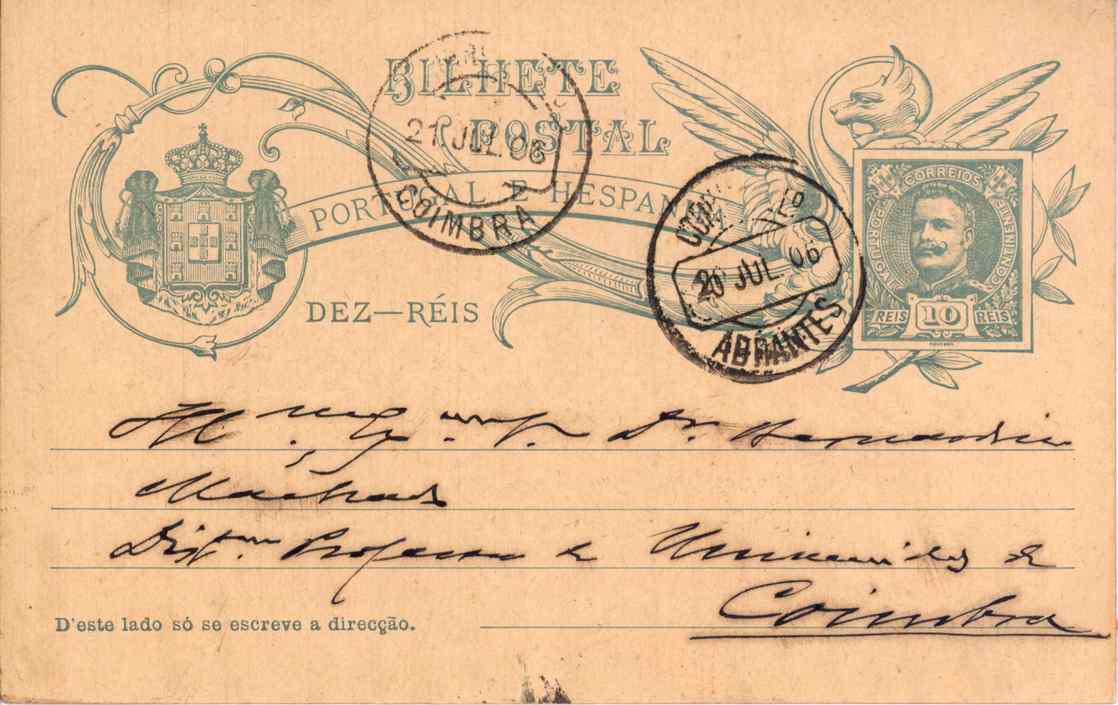 BILHETE
POSTAL
PORTUGAL E HESPANHA
DEZ—RÉIS
21 JUL. 06
COIMBRA
20 JUL. 06
ABRANTES
CORREIOS
PORTUGAL
CONTINENTE
REIS 10 REIS
Dr. Bernardino
Machado
Dist.mo Professor da Universidade de
Coimbra
D'este lado só se escreve a direcção.